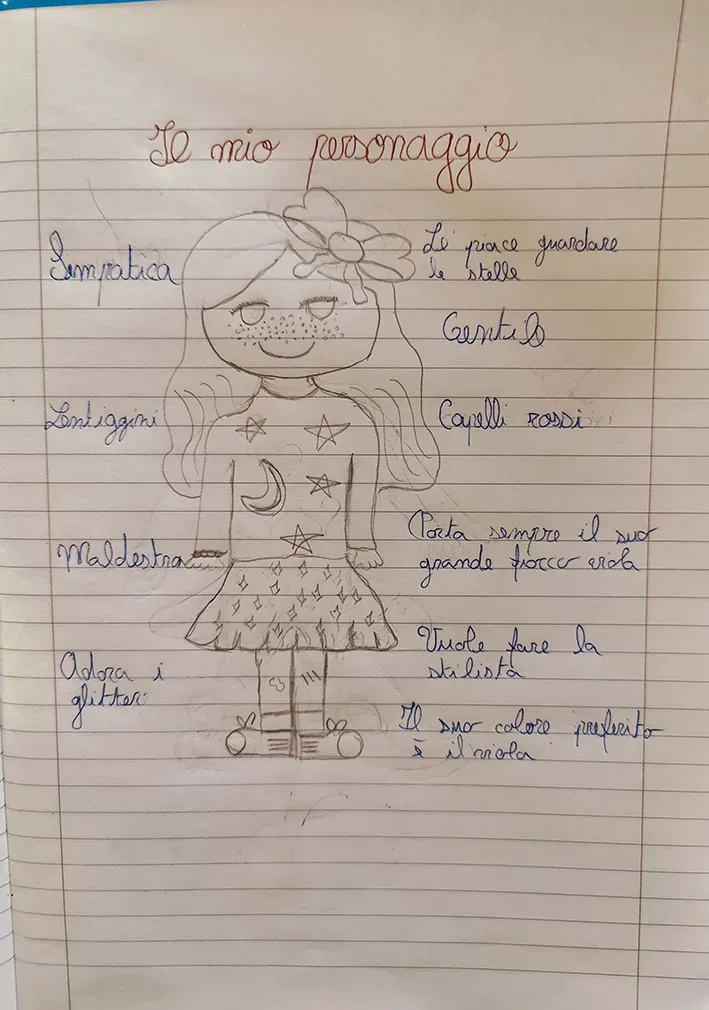 Il mio personaggio
Simpatica
Le piace guardare
le stelle
Gentile
Lentiggini
Capelli rossi
Maldestra
Porta sempre il suo
grande fiocco viola
Adora i
glitter
Vuole fare la
stilista
Il suo colore preferito
è il viola